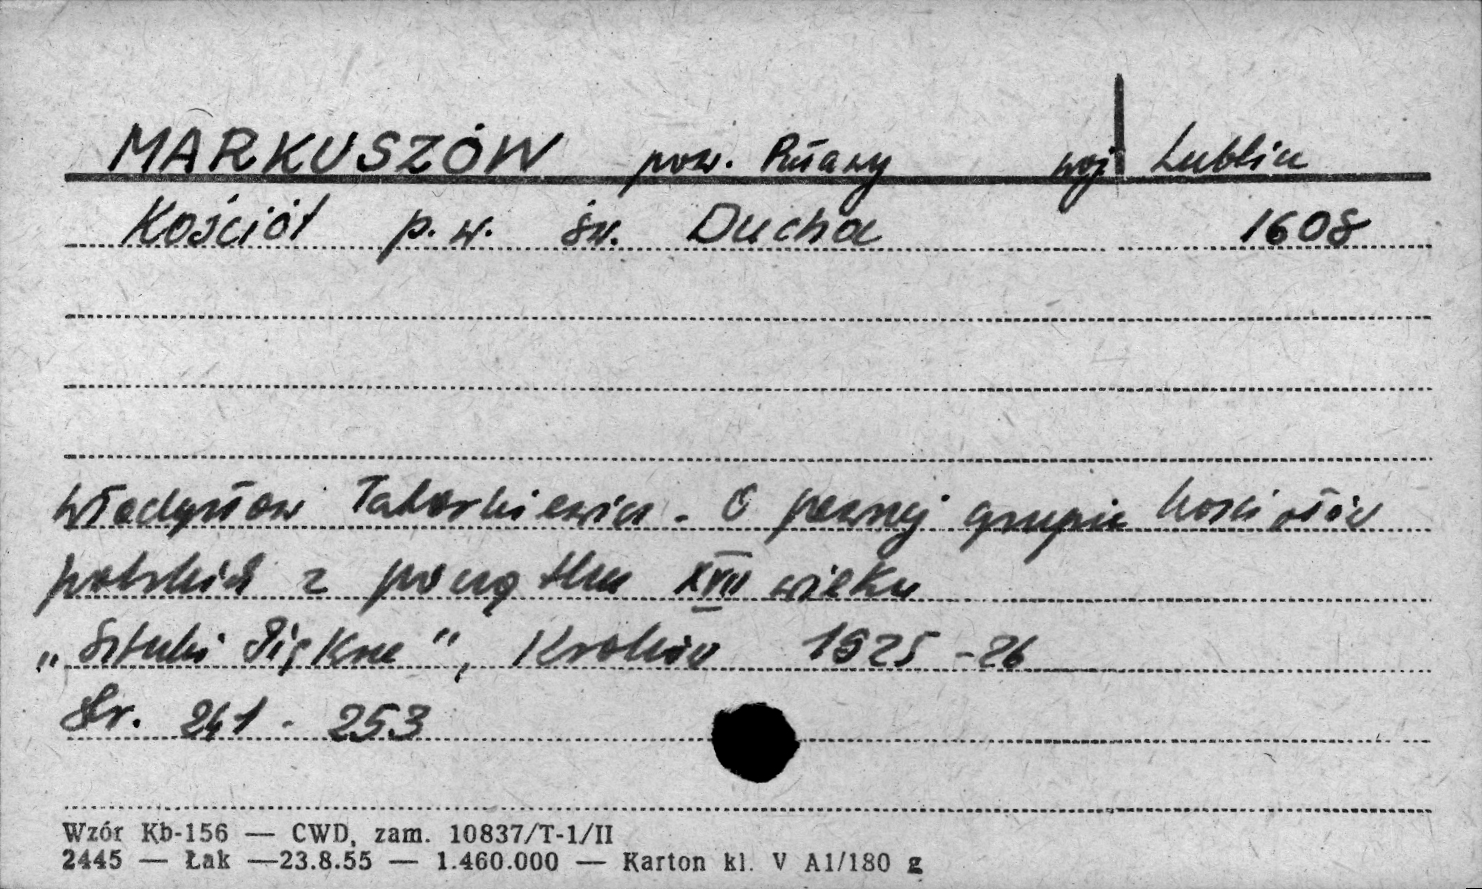 MARKUSZÓW pow. Puławy woj Lublin
Kościół p.w. św. Ducha 1608
Władysław Tatarkiewicz. O pewnej grupie kościołów
polskich z początku XVII wieku
„Sztuki Piękne", Kraków 1925-26
Str. 241-253
Wzór Kb-156 — CWD, zam. 10837/T-1/II
2445 — Łak —23.8.55 — 1.460.000 — Karton kl. V A1/180 g